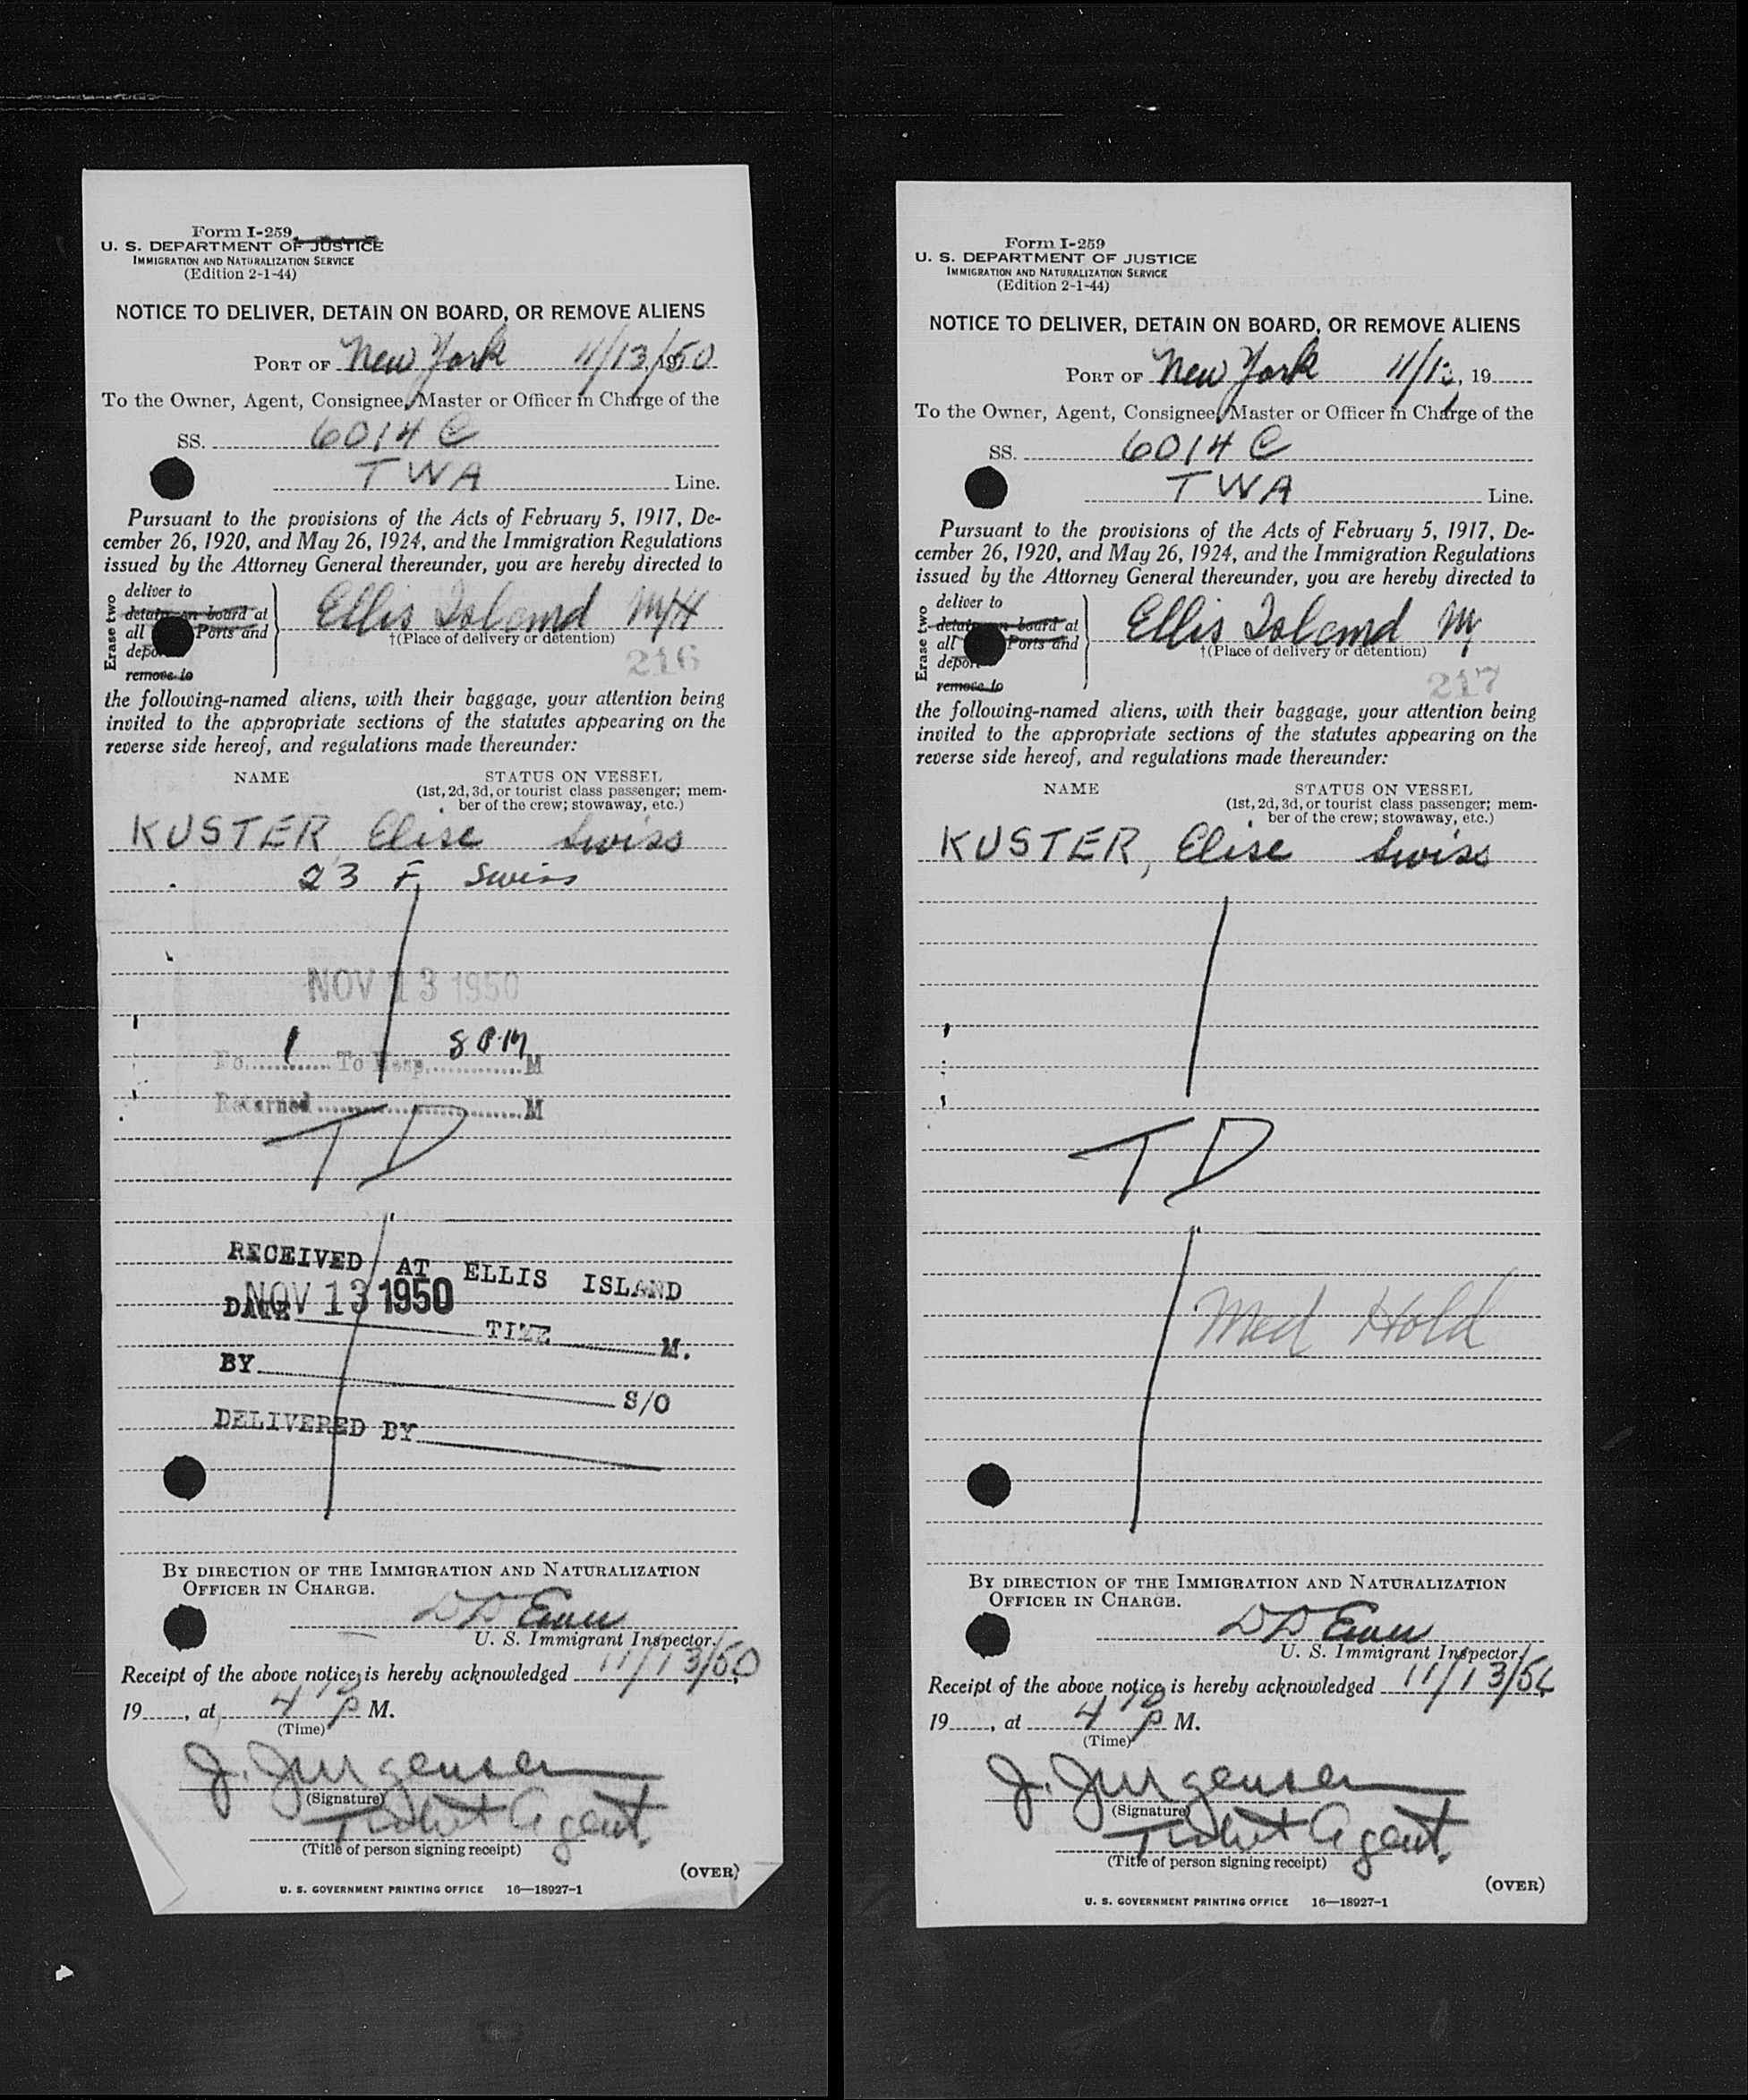 Form I-259
U. S. DEPARTMENT OF JUSTICE
IMMIGRATION AND NATURALIZATION SERVICE
(Edition 2-1-44)
NOTICE TO DELIVER, DETAIN ON BOARD, OR REMOVE ALIENS
PORT OF New York 11/13/1950
To the Owner, Agent, Consignee, Master or Officer in Charge of the
SS. 6014 C
TWA Line.
Pursuant to the provisions of the Acts of February 5, 1917, De-
cember 26, 1920, and May 26, 1924, and the Immigration Regulations
issued by the Attorney General thereunder, you are hereby directed to
Erase two
deliver to
detain on board at
all Ports and
remove to
Ellis Island M/H
†(Place of delivery or detention)
216
the following-named aliens, with their baggage, your attention being
invited to the appropriate sections of the statutes appearing on the
reverse side hereof, and regulations made thereunder:
NAME STATUS ON VESSEL
(1st, 2d, 3d, or tourist class passenger; mem-
ber of the crew; stowaway, etc.)
KUSTER Elise Swiss
23 F, Swiss
NOV 13 1950
No. 1 To Hosp. 8 PM M
Returned M
TD
RECEIVED AT ELLIS ISLAND
DATE NOV 13 1950 TIME M.
BY S/O
DELIVERED BY
BY DIRECTION OF THE IMMIGRATION AND NATURALIZATION
OFFICER IN CHARGE.
U. S. Immigrant Inspector.
Receipt of the above notice is hereby acknowledged 11/13/50
19 , at 4 10 P M.
(Time)
J. Jurgensen
(Signature)
Ticket Agent
(Title of person signing receipt)
(OVER)
U. S. GOVERNMENT PRINTING OFFICE 16—18927-1
Form I-259
U. S. DEPARTMENT OF JUSTICE
IMMIGRATION AND NATURALIZATION SERVICE
(Edition 2-1-44)
NOTICE TO DELIVER, DETAIN ON BOARD, OR REMOVE ALIENS
PORT OF New York 11/13, 19
To the Owner, Agent, Consignee, Master or Officer in Charge of the
SS. 6014 C
TWA Line.
Pursuant to the provisions of the Acts of February 5, 1917, De-
cember 26, 1920, and May 26, 1924, and the Immigration Regulations
issued by the Attorney General thereunder, you are hereby directed to
Erase two
deliver to
detain on board at
all Ports and
remove to
Ellis Island M
†(Place of delivery or detention)
217
the following-named aliens, with their baggage, your attention being
invited to the appropriate sections of the statutes appearing on the
reverse side hereof, and regulations made thereunder:
NAME STATUS ON VESSEL
(1st, 2d, 3d, or tourist class passenger; mem-
ber of the crew; stowaway, etc.)
KUSTER, Elise Swiss
TD
Med Hold
BY DIRECTION OF THE IMMIGRATION AND NATURALIZATION
OFFICER IN CHARGE.
U. S. Immigrant Inspector.
Receipt of the above notice is hereby acknowledged 11/13/50
19 , at 4 10 P M.
(Time)
J. Jurgensen
(Signature)
Ticket Agent
(Title of person signing receipt)
(OVER)
U. S. GOVERNMENT PRINTING OFFICE 16—18927-1